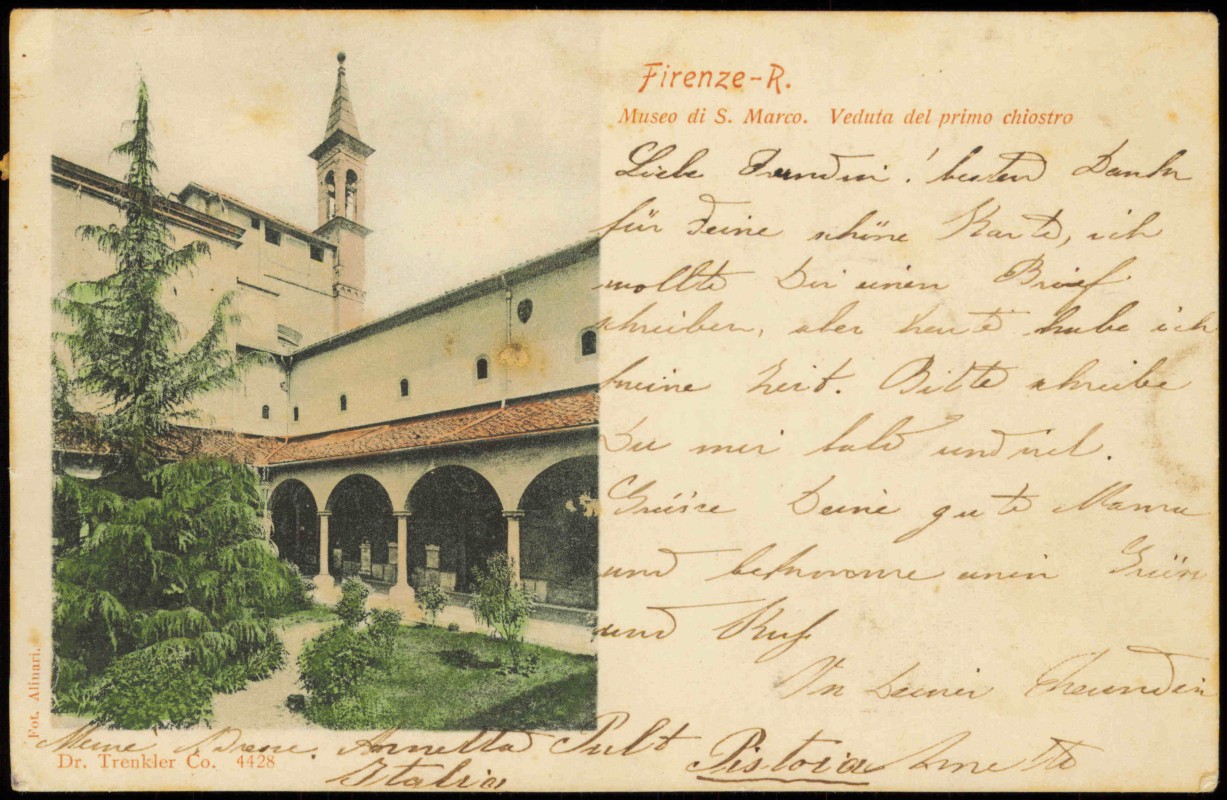 Firenze-R.
Museo di S. Marco. Veduta del primo chiostro
Liebe Freundin! besten Dank
für Deine schöne Karte, ich
wollte Dir einen Brief
schreiben, aber heute habe ich
keine Zeit. Bitte schreibe
Du mir bald und viel.
Grüsse Deine gute Mama
und bekomme einen Grüss
und Kuss
Von Deiner Freundin
Annette
Meine Adresse. Annetta Pult Pistoia
Italia
Fot. Alinari.
Dr. Trenkler Co. 4428